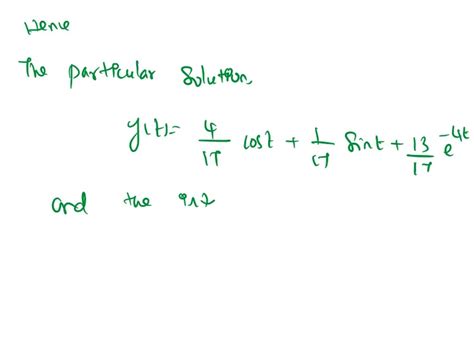 Hence
The particular solution,
y(t)= 4/17 cost + 1/17 sint + 13/17 e^-4t
and the int